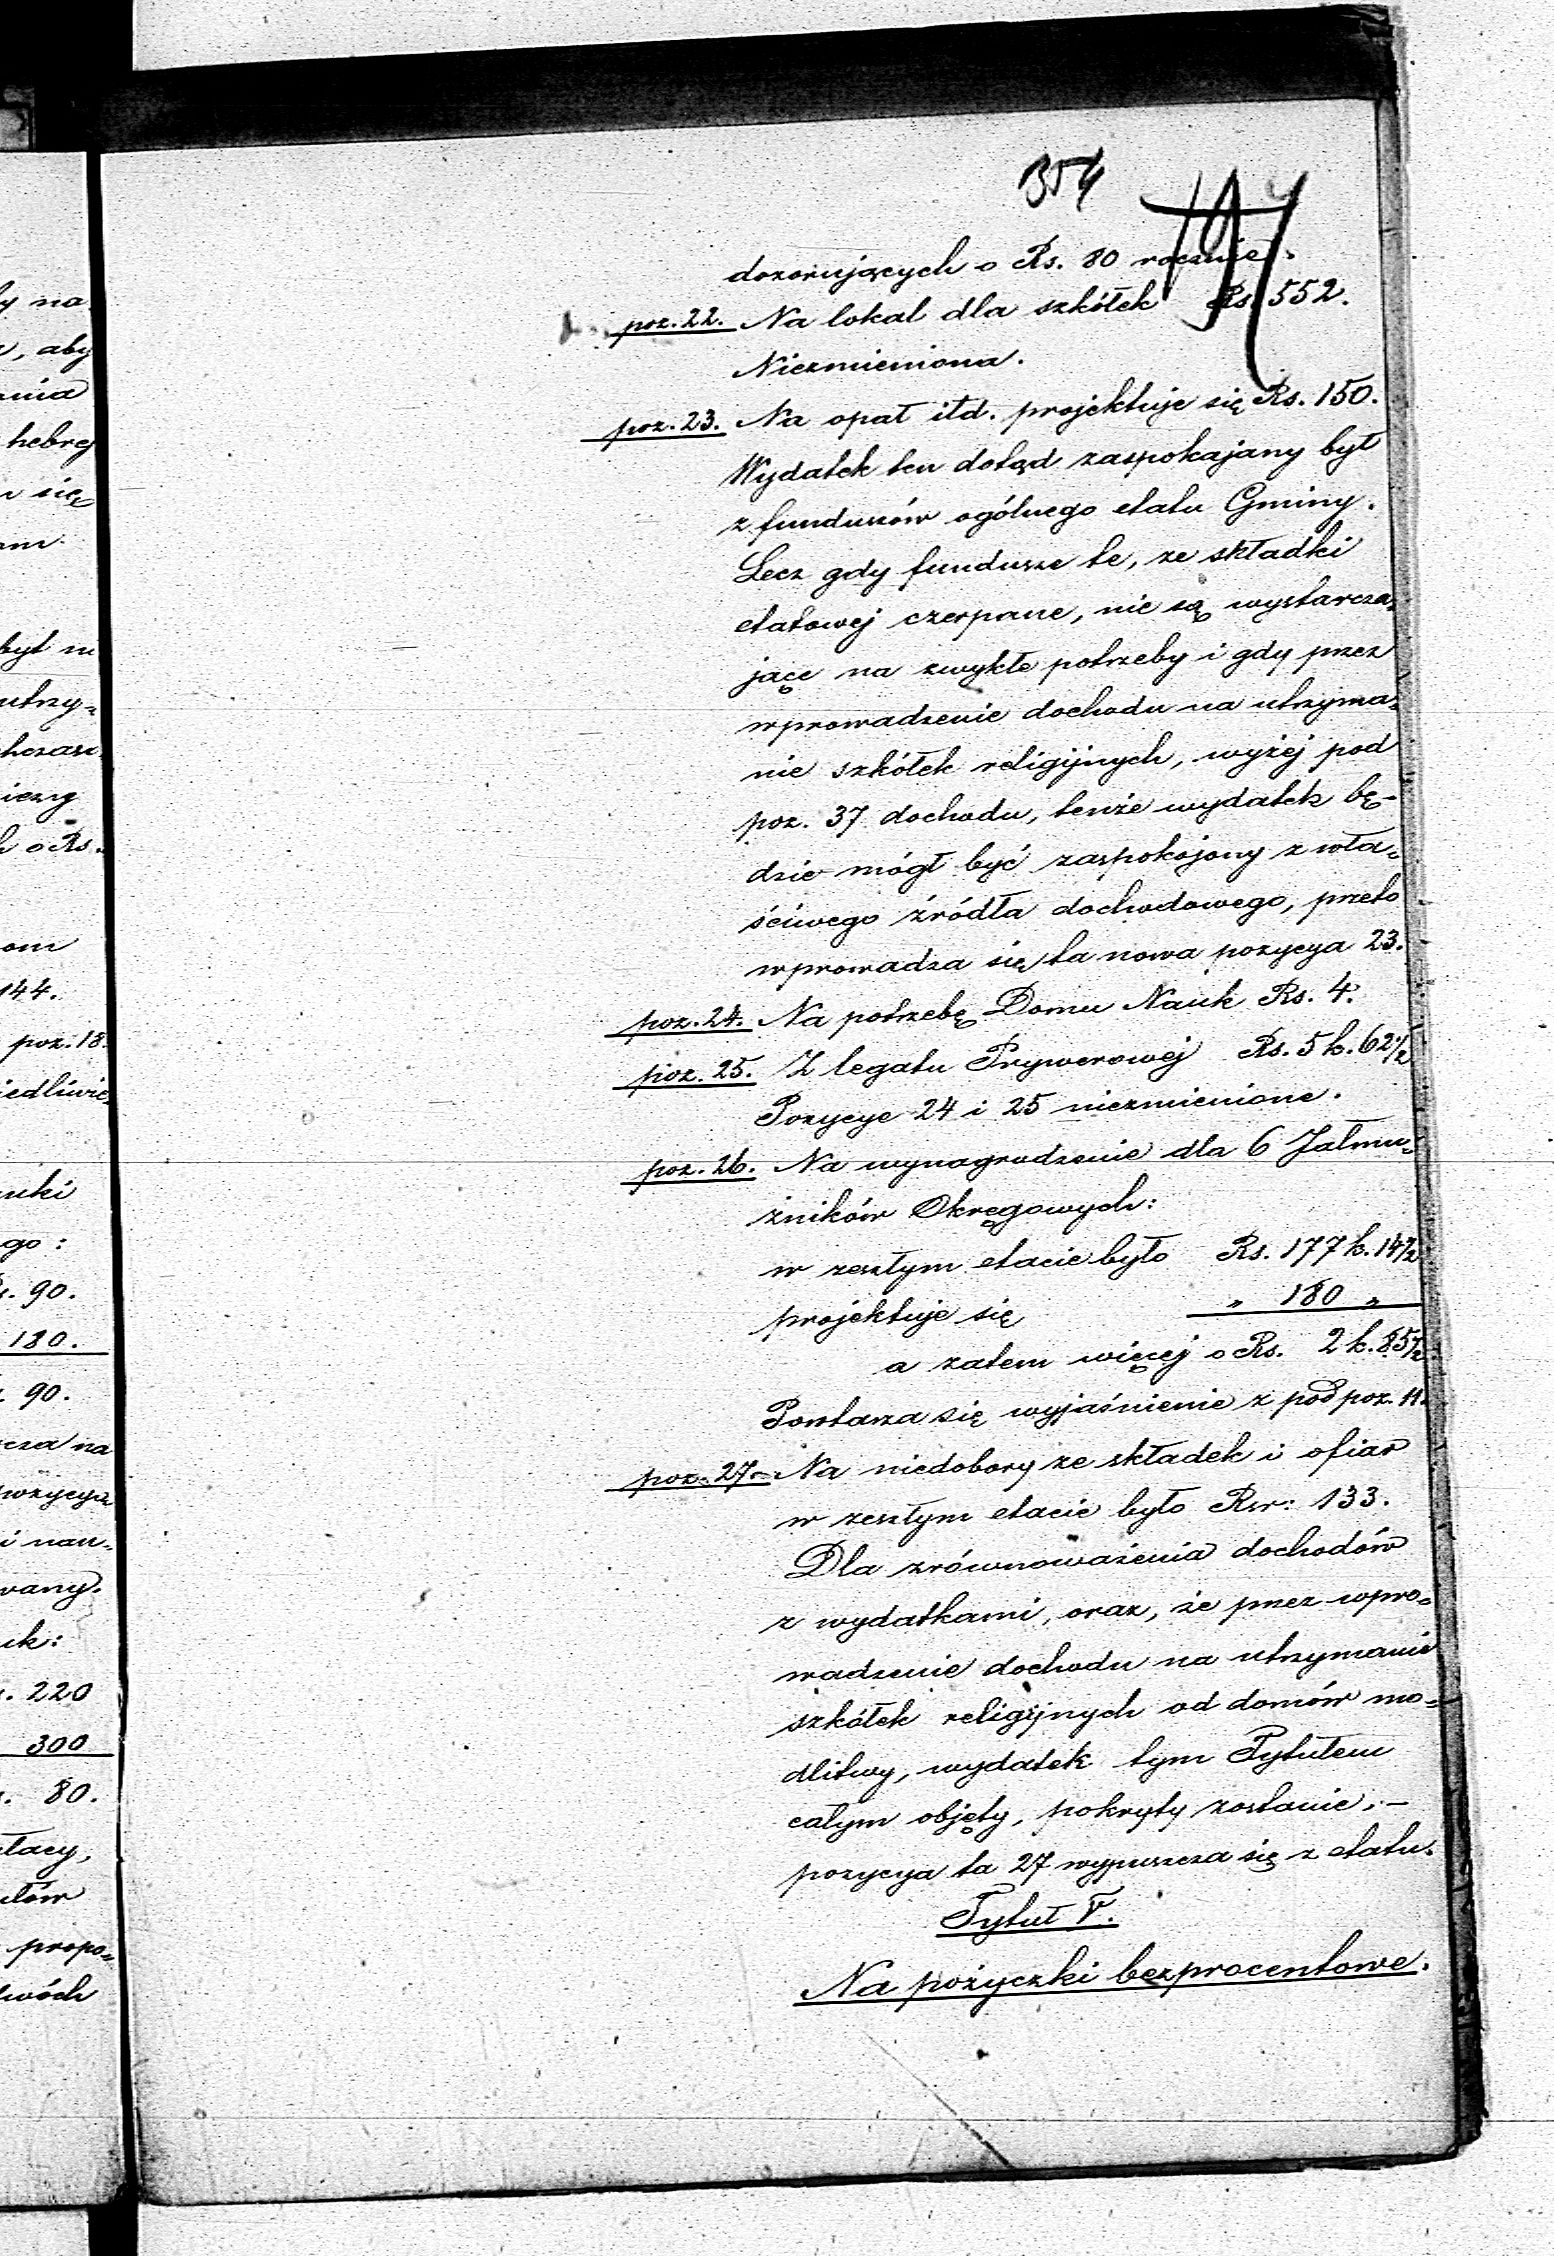 354
197
dozorujących o Rs. 80 rocznie.
poz. 22. Na lokal dla szkółek Rs. 552.
Niezmieniona.
poz. 23. Na opał itd. projektuje się Rs. 150.
Wydatek ten dotąd zaspokajany był
z funduszów ogólnego etatu Gminy.
Lecz gdy fundusze te, ze składki
etatowej czerpane, nie są wystarcza-
jące na zwykłe potrzeby i gdy przez
wprowadzenie dochodu na utrzyma-
nie szkółek religijnych, wyżej pod
poz. 37 dochodu, tenże wydatek bę-
dzie mógł być zaspokojony z wła-
ściwego źródła dochodowego, przeto
wprowadza się ta nowa pozycya 23.
poz. 24. Na potrzebę Domu Nauk Rs. 4.
poz. 25. Z legatu Prywerowej Rs. 5 k. 62½
Pozycye 24 i 25 niezmienione.
poz. 26. Na wynagrodzenie dla 6 Jałmu-
żników Okręgowych:
w zeszłym etacie było Rs. 177 k. 14½
projektuje się „ 180 „
a zatem więcej o Rs. 2 k. 85½
Powtarza się wyjaśnienie z pod poz. 11.
poz. 27. Na niedobory ze składek i ofiar
w zeszłym etacie było Rsr: 133.
Dla zrównoważenia dochodów
z wydatkami, oraz, że przez wpro-
wadzenie dochodu na utrzymanie
szkółek religijnych od domów mo-
dlitwy, wydatek tym Tytułem
całym objęty, pokryty zostanie, —
pozycya ta 27 wypuszcza się z etatu.
Tytuł V.
Na pożyczki bezprocentowe.